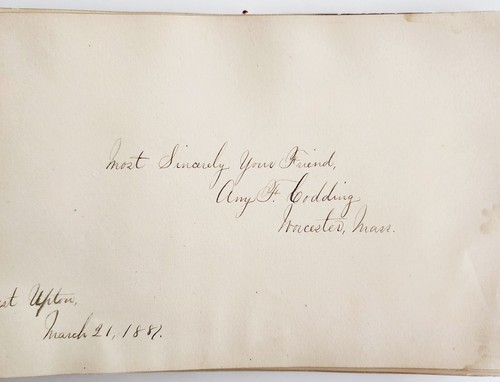 Most Sincerely Your Friend,
Amy F. Codding
Worcester, Mass.
st Upton,
March 21, 1887.